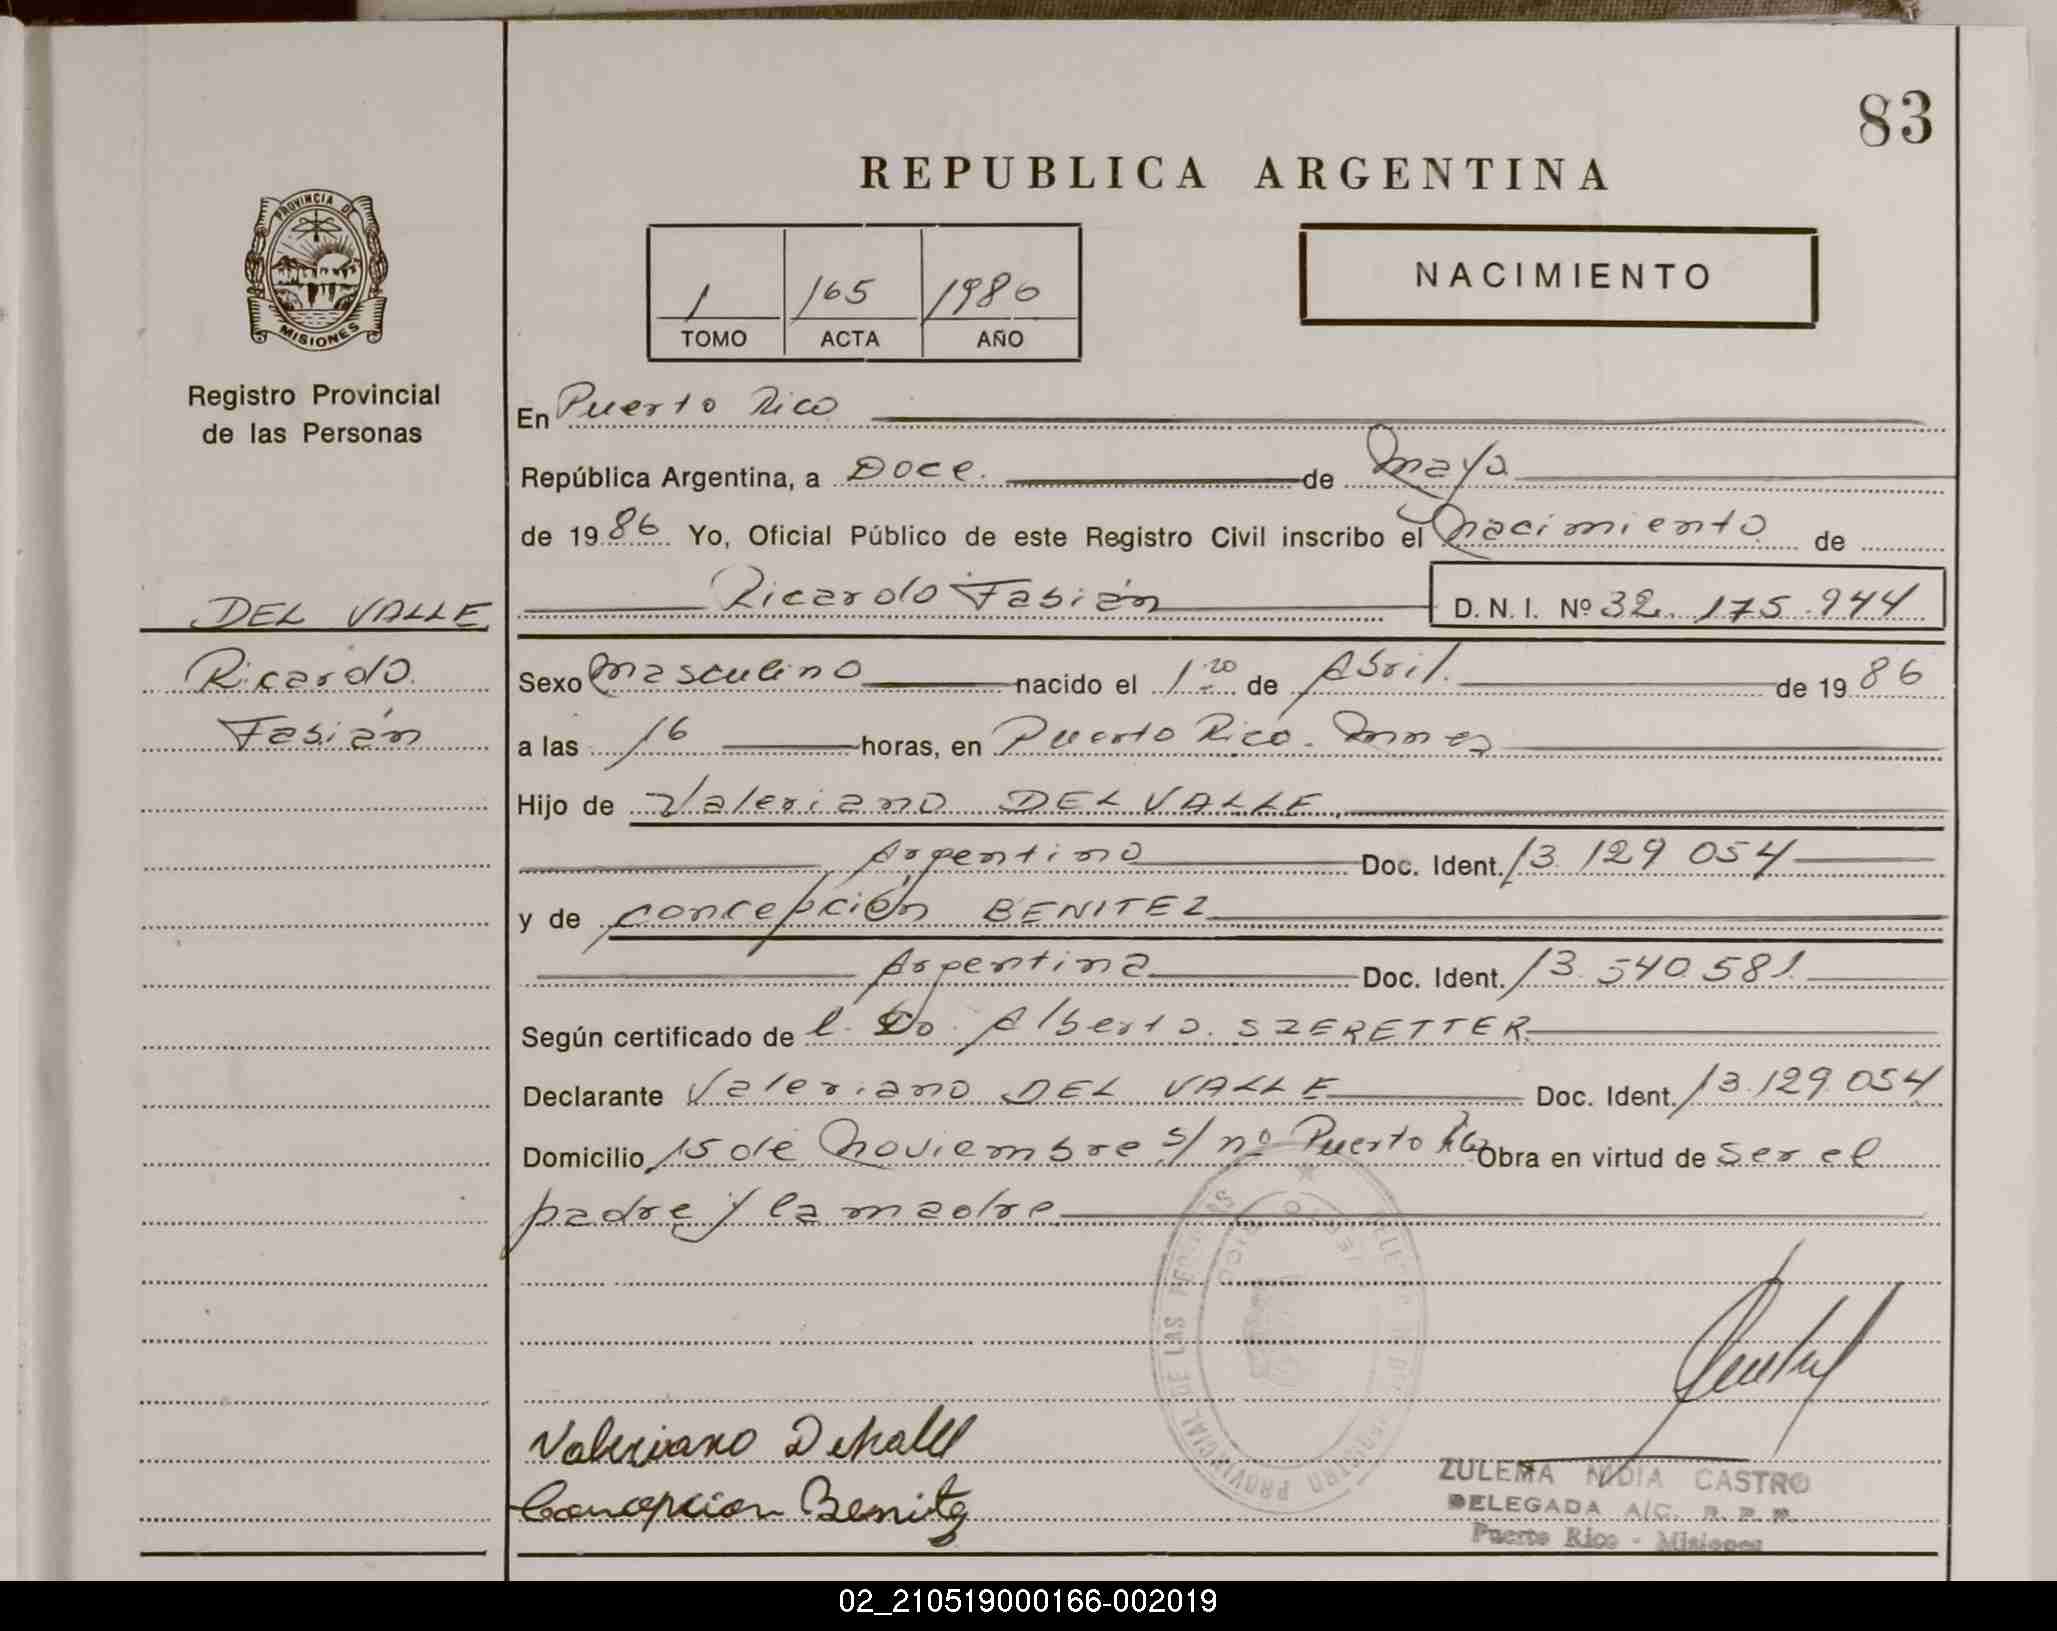 83
REPUBLICA ARGENTINA
PROVINCIA DE
MISIONES
1 165 1986
TOMO ACTA AÑO
NACIMIENTO
Registro Provincial
de las Personas
En Puerto Rico
República Argentina, a Doce. de Mayo
de 1986 Yo, Oficial Público de este Registro Civil inscribo el Nacimiento de
DEL VALLE Ricardo Fabián D. N. I. Nº 32.175.944
Ricardo Sexo Masculino nacido el 1ro de Abril de 1986
Fabián a las 16 horas, en Puerto Rico.
Hijo de Valeriano DEL VALLE
Argentino Doc. Ident. 13.129 054
y de Concepción BENITEZ
Argentina Doc. Ident. 13.540.581
Según certificado de Alberto SZERETTER
Declarante Valeriano DEL VALLE Doc. Ident. 13.129.054
Domicilio 15 de Noviembre s/nº Puerto Rico Obra en virtud de ser el
padre y la madre
REGISTRO PROVINCIAL DE LAS PERSONAS
PUERTO RICO
Valeriano Delvalle
Concepcion Benitez
ZULEMA NIDIA CASTRO
DELEGADA A/C. R. P. P.
Puerto Rico - Misiones
02_210519000166-002019